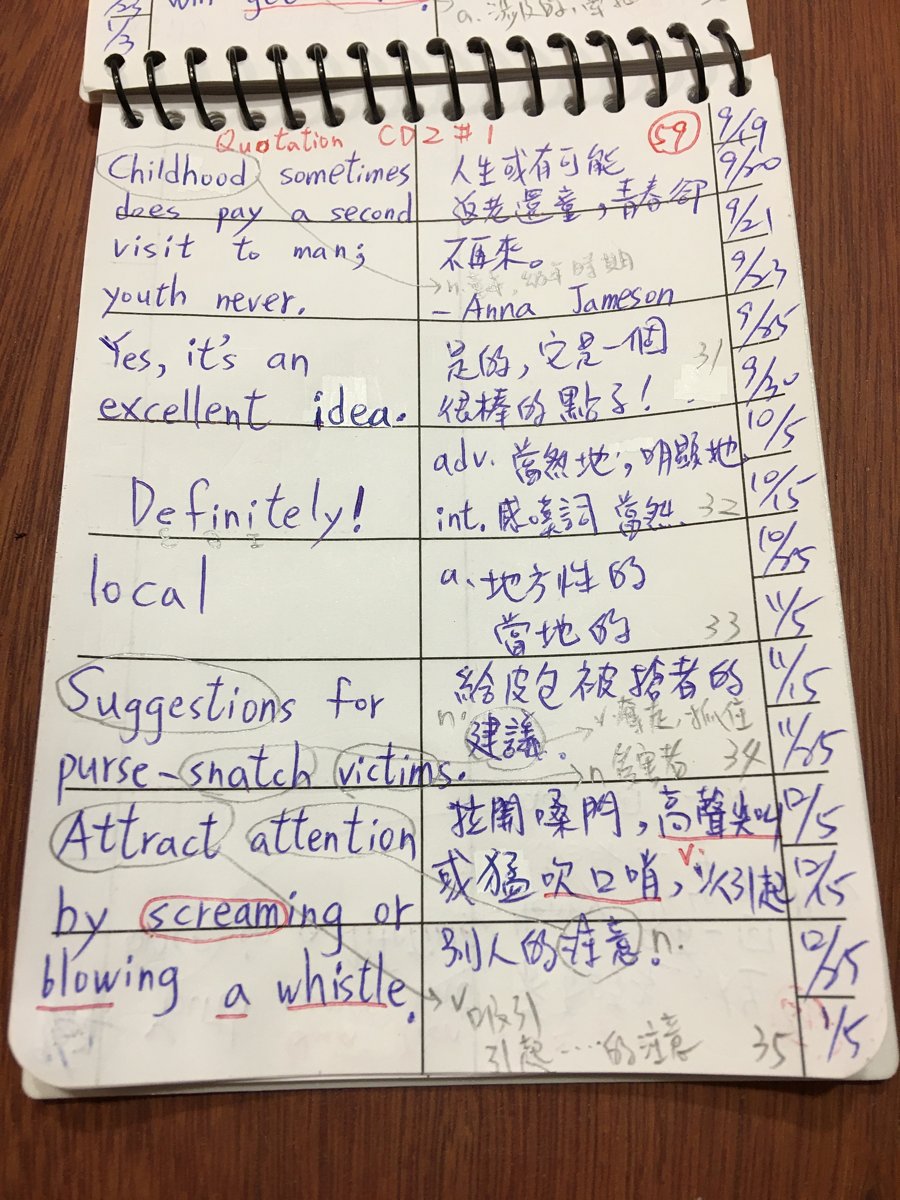 1/3
a.
Quotation CD2 #1
59
Childhood sometimes
does pay a second
visit to man;
youth never.
人生或有可能
返老還童，青春卻
不再來。
n. 童年，幼年時期
- Anna Jameson
Yes, it's an
excellent idea.
是的，它是一個
很棒的點子！
31
Definitely!
adv. 當然地；明顯地
int. 感嘆詞 當然
32
local
a. 地方性的
當地的
33
Suggestions for
purse-snatch victims.
給皮包被搶者的
n. 建議.
v. 奪走，抓住
n 受害者
34
Attract attention
by screaming or
blowing a whistle.
拉開嗓門，高聲尖叫
v.
或猛吹口哨，以引起
別人的注意！n.
v 吸引
引起……的注意
35
9/19
9/20
9/21
9/23
9/25
9/30
10/5
10/15
10/25
11/5
11/15
11/25
12/5
12/15
12/25
1/5